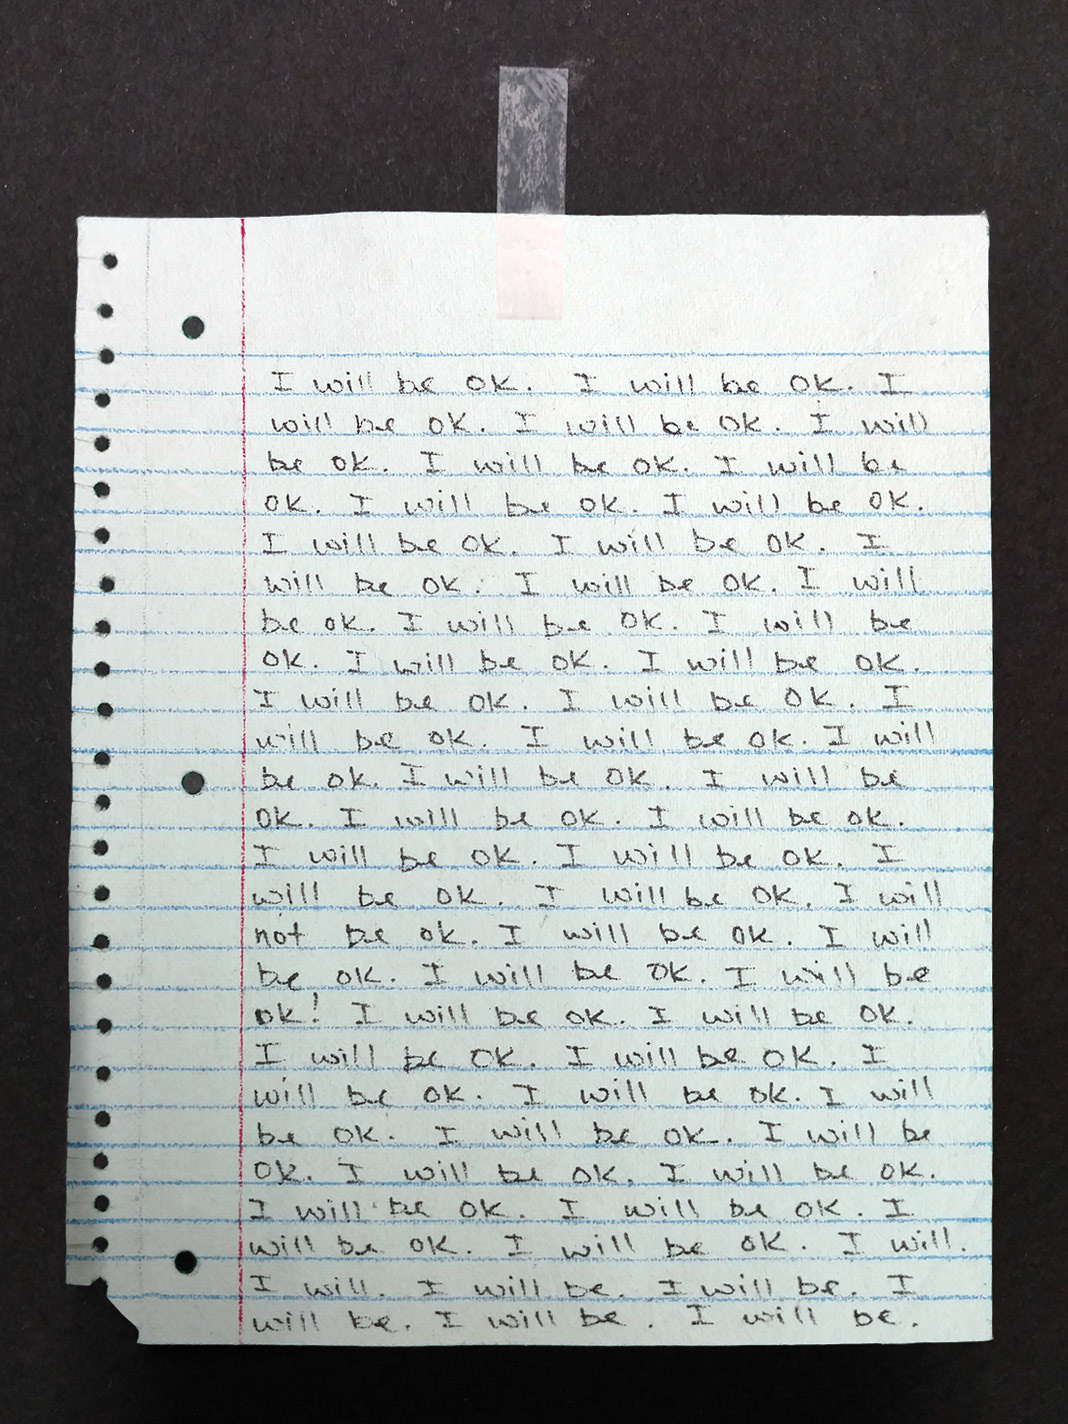 I will be ok. I will be ok. I
will be ok. I will be ok. I will
be ok. I will be ok. I will be
ok. I will be ok. I will be ok.
I will be ok. I will be ok. I
will be ok. I will be ok. I will
be ok. I will be ok. I will be
ok. I will be ok. I will be ok.
I will be ok. I will be ok. I
will be ok. I will be ok. I will
be ok. I will be ok. I will be
ok. I will be ok. I will be ok.
I will be ok. I will be ok. I
will be ok. I will be ok. I will
not be ok. I will be ok. I will
be ok. I will be ok. I will be
ok! I will be ok. I will be ok.
I will be ok. I will be ok. I
will be ok. I will be ok. I will
be ok. I will be ok. I will be
ok. I will be ok. I will be ok.
I will be ok. I will be ok. I
will be ok. I will be ok. I will.
I will. I will be. I will be. I
will be. I will be. I will be.